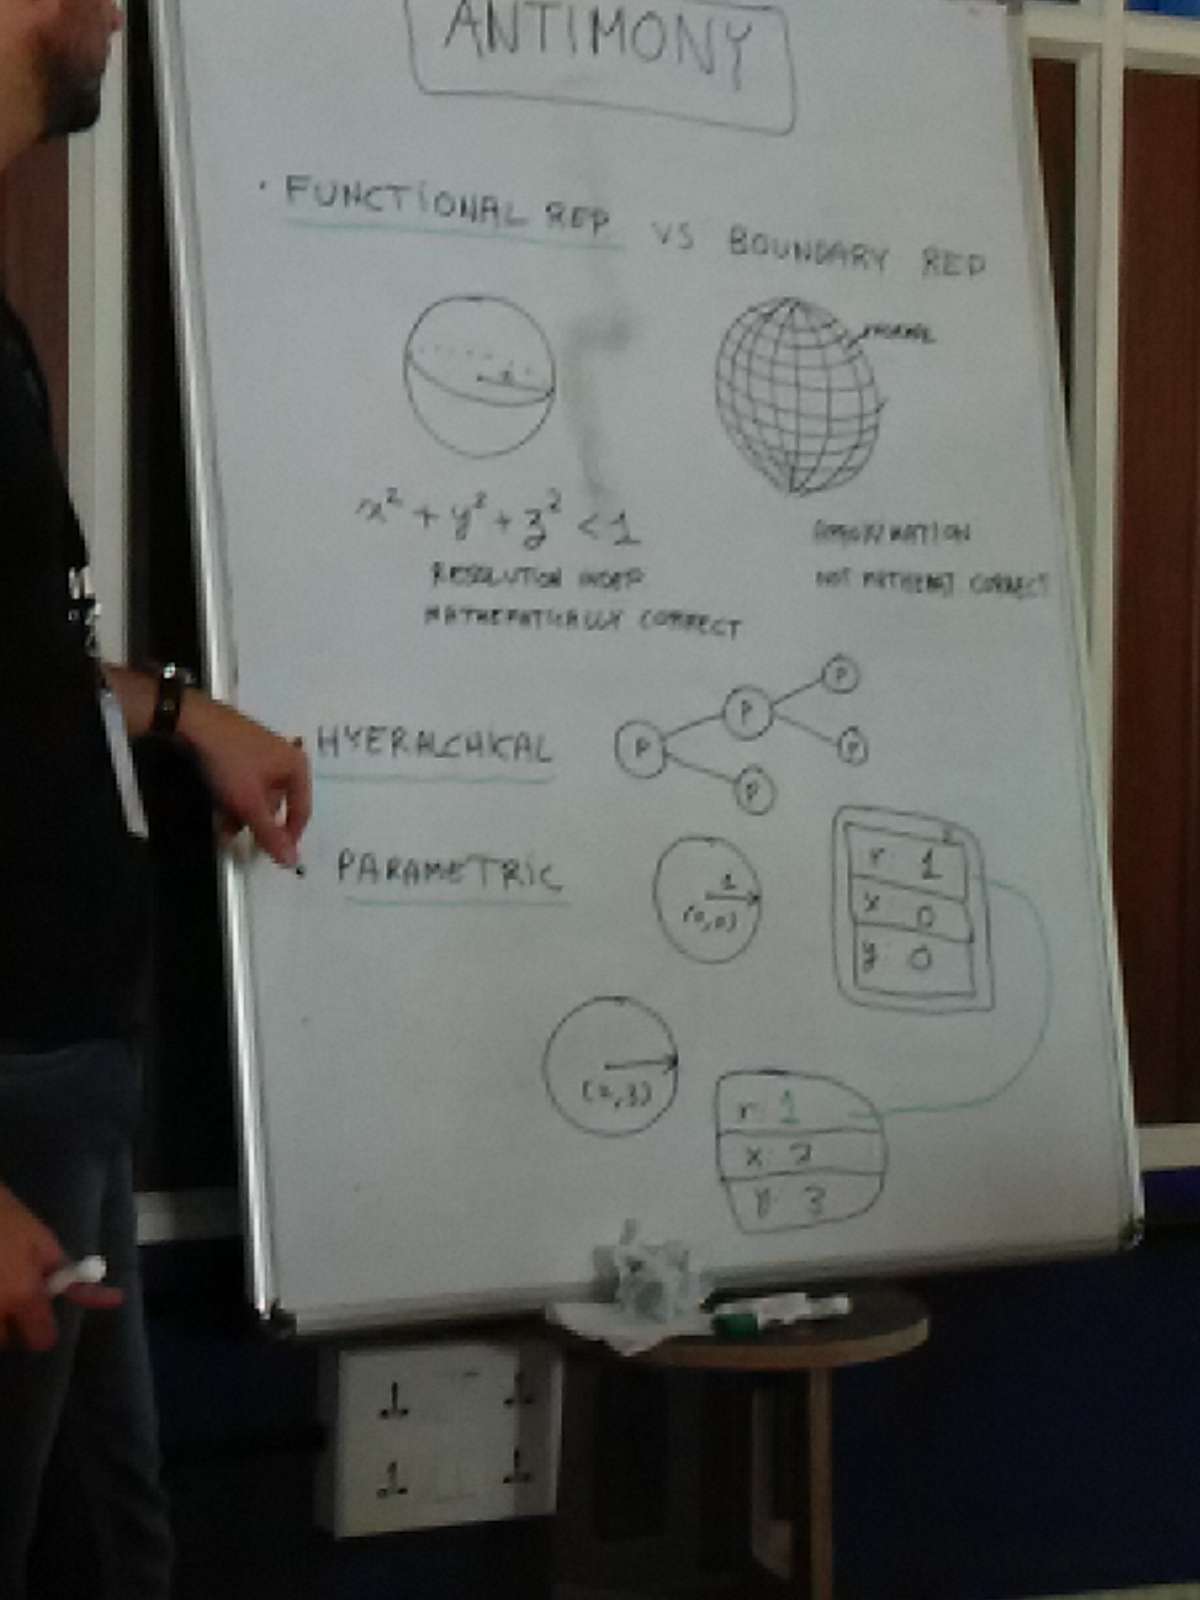 ANTIMONY
· FUNCTIONAL REP VS BOUNDARY REP
x² + y² + z² < 1
RESOLUTION INDEP
MATHEMATICALLY CORRECT
NOT MATHEMAT CORRECT
· HYERALCHICAL
P
P
P
P
P
· PARAMETRIC
1
(0,0)
r: 1
x 0
y: 0
(2,3)
r: 1
x: 2
y: 3